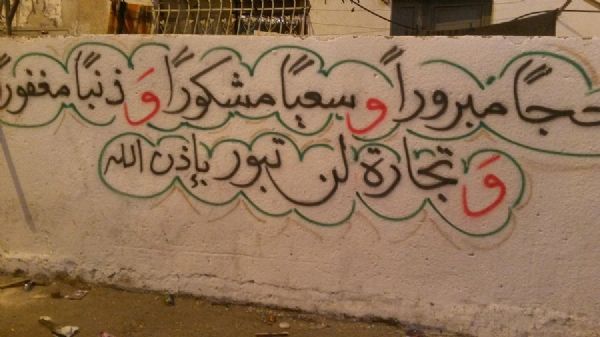 حجاً مبروراً و سعياً مشكوراً وَ ذنباً مغفوراً
وَ تجارة لن تبور بإذن الله